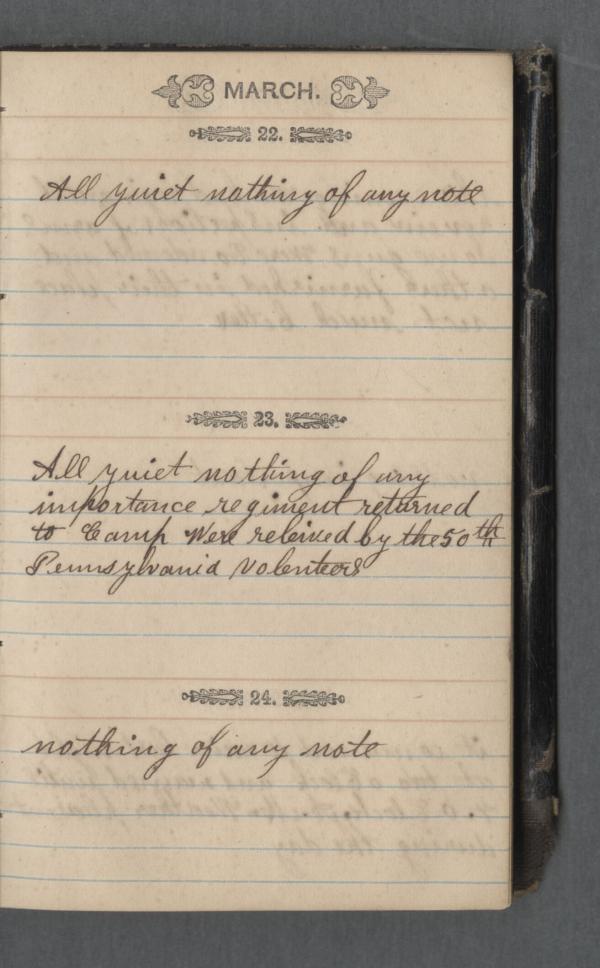 MARCH.
22.
All quiet nothing of any note
23.
All quiet nothing of any
importance regiment returned
to Camp Were releived by the 50th
Pennsylvania Volenteers
24.
nothing of any note